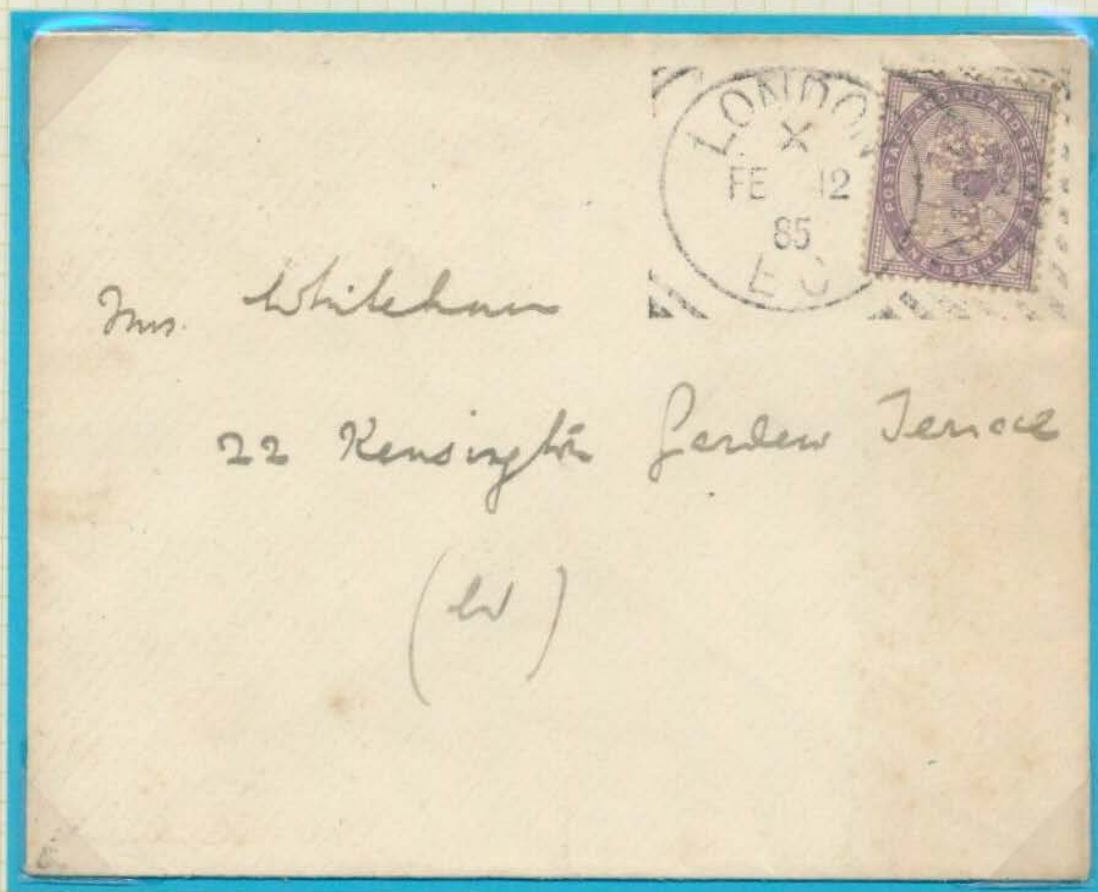 LONDON
X
FE 12
85
E C
POSTAGE AND INLAND REVENUE
ONE PENNY
Mrs. Whitehouse
22 Kensington Garden Terrace
(W)